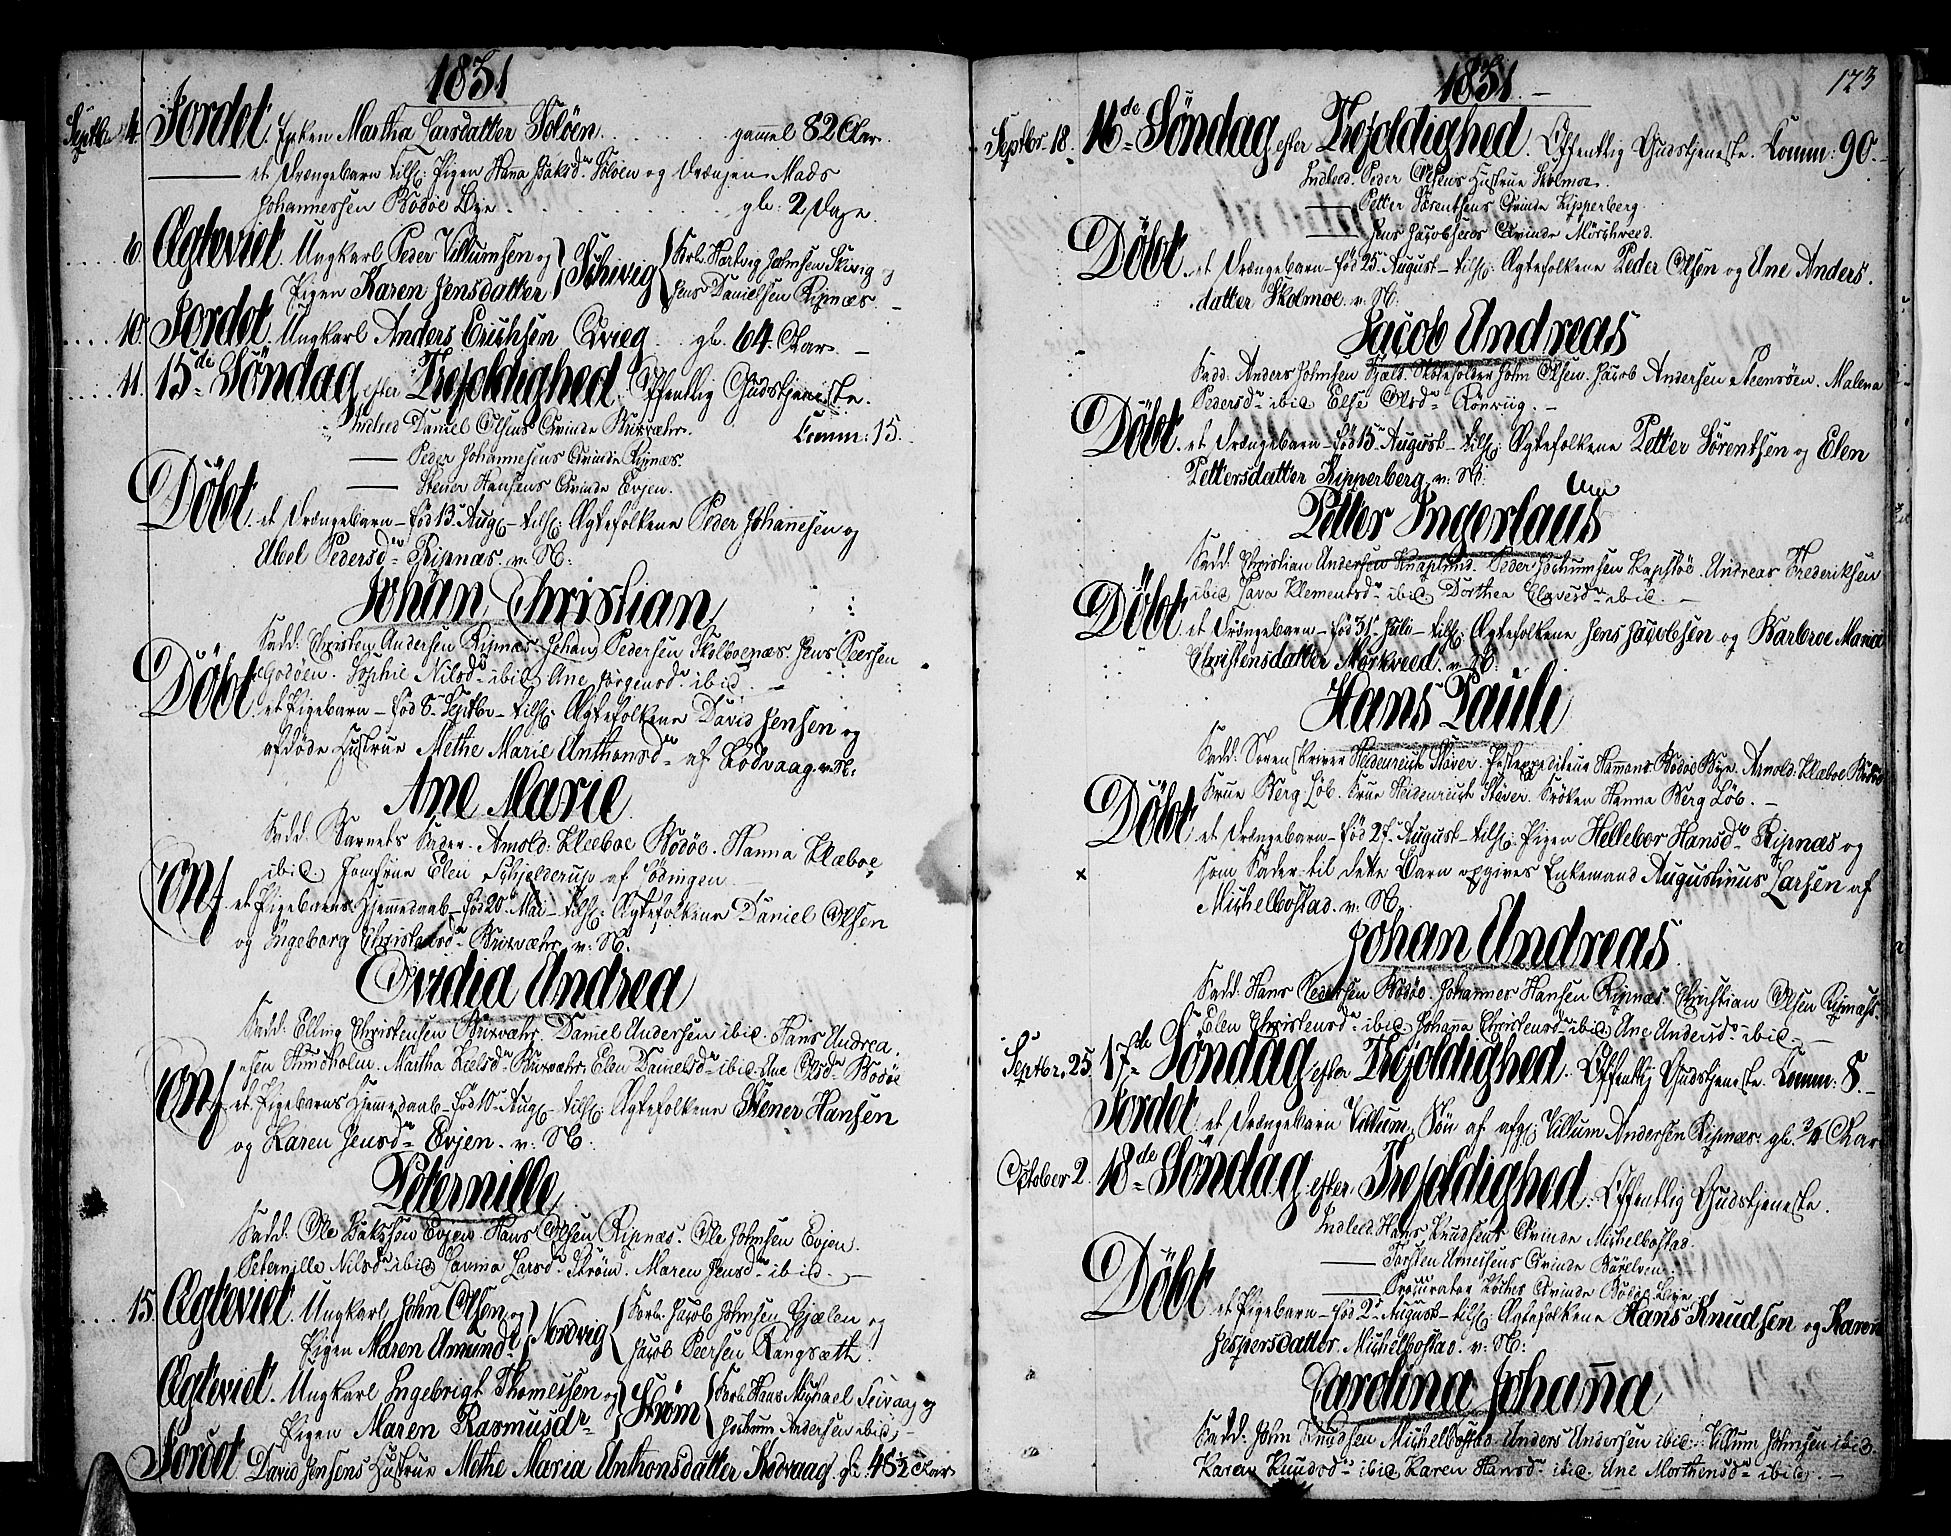 1831
Septbr 4. Jordet. Enken Martha Larsdatter Soløen . . . . . gammel 82 Aar.
et Drængebarn tilh: Pigen Hana Isaksd. Soløen og Drængen Mads
Johannessen Bodøe Bye . . . . . gl: 2 Dage.
6. Ægteviet. Ungkarl Peder Villumsen og
Pigen Karen Jensdatter
Schivig
Forlr. Hartvig Johnsen Skivig og
Jens Danielsen Ripnæs.
10. Jordet. Ungkarl Anders Erichsen Qvieg . . gl. 64 Aar. –
11. 15de Søndag efter Trefoldighed. Offentlig Gudstjeneste.
Indleed Daniel Olsens Qvinde Burvæhr. Comm: 15.
—— Peder Johannesens Qvinde Ripnæs.
—— Stener Hansens Qvinde Evjen.
Døbt. et Drængebarn – fød 13 Aug – tilh: Ægtefolkene Peder Johannesen og
Abel Pedersd. Ripnæs. v: N:
Johan Christian
Fadd: Christen Andersen Ripnæs. Johan Pedersen Skolboenæs. Jens Peersen
Godøen. Sophie Nilsd. ibid. Ane Jørgensd. ibid. –
Døbt et Pigebarn – fød 8 Septbr – tilh: Ægtefolkene David Jensen og
afdøde Hustrue Methe Marie Anthonsd. af Kodvaag. v. N:
Ane Marie
Fadd: Barnets Fader. Arnold Klæboe Bodøe. Hanna Klæboe
ibid. Jomfrue Elen Schjelderup af Lødingen
Conf. et Pigebarns Hjemmedaab – fød 20 Mai – tilh: Ægtefolkene Daniel Olsen
og Ingeborg Christensd. Burvæhr. v: N:
Ovidia Andrea
Fadd: Elling Christensen Burvæhr. Daniel Andersen ibid. Hans Andrea-
sen Hunsholm. Martha Kielsd. Burvæhr. Elen Danielsd. ibid. Ane Olsd. Bodøe
Conf. et Pigebarns Hjemmedaab – fød 10 Aug – tilh: Ægtefolkene Stener Hansen
og Karen Jensd. Evjen. v: N:
Peternille
Fadd: Ole Isaksen Evjen. Hans Olsen Ripnæs. Ole Johnsen Evjen.
Peternille Nilsd. ibid. Lavina Larsd. Strøm. Maren Jensd. ibid. –
15. Ægteviet. Ungkarl John Olsen og
Pigen Maren Amundd.
Nordvig
Forlr. Jacob Johnsen Gjælen og
Jacob Peersen Rangsæth.
Ægteviet. Ungkarl Ingebrigt Thomessen og
Pigen Maren Rasmusdr
Strøm
Forlr. Hans Michael Seivaag og
Jochum Andersen ibid. –
Jordet David Jensens Hustrue Methe Maria Anthonsdatter Kodvaag. gl. 48½ Aar
1831. – 123
Septbr. 18. 16de Søndag efter Trefoldighed. Offentlig Gudstjeneste. Comm: 90. –
Indleed. Peder Olsens Hustrue Skolmoe.
—— Petter Sørentsens Qvinde Kipperberg.
—— Jens Jacobsens Qvinde Mørchveed.
Døbt. et Drængebarn – fød 25 August – tilh: Ægtefolkene Peder Olsen og Ane Anders-
datter Skolmoe. v: N:
Jacob Andreas
Fadd: Anders Johnsen Fjeld. Skoleholder John Olsen. Jacob Andersen Steensøen. Malena
Pedersd. ibid. Else Olsd. Rønviig. –
Døbt. et Drængebarn – fød 15 August – tilh: Ægtefolkene Petter Sørentsen og Elen
Pettersdatter Kipperberg v: N:
Petter Ingerlaus
Fadd: Christian Andersen Knaplund. Peder Jochumsen Kapstøe. Andreas Frederiksen
ibid. Java Klementsd. ibid. Dorthea Clausd. ibid. –
Døbt et Drængebarn – fød 31 Juli – tilh: Ægtefolkene Jens Jacobsen og Barbroe Marie
Christensdatter Mørkveed. v: N:
Hans Pauli
Fadd: Sorenskriver Heidenreich Støver. Postexpediteur Hammond Bodøe Bye. Arnold Klæboe Bodøe
Frue Berg Løb. Frue Heidenreich Støver. Frøken Hanna Berg Løb. –
Døbt et Drængebarn – fød 27 August – tilh: Pigen Hellebor Hansd. Ripnæs og
× som Fader til dette Barn opgives Enkemand Augustinus Larsen af
Michelbostad. v: N:
Johan Andreas
Fadd: Hans Pedersen Bodøe. Johannes Hansen Ripnæs. Christian Olsen Ripnæs.
Elen Christensd. ibid. Johanna Christensd. ibid. Ane Andersd. ibid. –
Septbr. 25. 17de Søndag efter Trefoldighed. Offentlig Gudstjeneste. Comm: 8. –
Jordet. et Drængebarn Villum, Søn af afg: Villum Andersen Ripnæs. gl. ¾ Aar
October 2. 18de Søndag efter Trefoldighed. Offentlig Gudstjeneste.
Indleed. Hans Knudsens Qvinde Michelbostad.
—— Torsten Arnesens Qvinde Børelven.
—— Procurator Kothes Qvinde Bodøe Bye.
Døbt et Pigebarn – fød 2 August – tilh: Ægtefolkene Hans Knudsen og Karen
Jespersdatter. Michelbostad. v: N:
Carolina Johanna
Fadd: John Knudsen Michelbostad. Anders Andersen ibid. Villum Johnsen ibid.
Karen Knudsd. ibid. Karen Hansd. ibid. Ane Morthensd. ibid. –